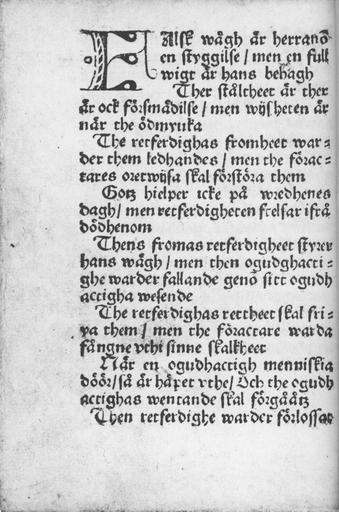 FAlsk wågh är herranō
en styggilse / men en full
wigt är hans behagh
Ther ståltheet är ther
är ock försmädilse / men wijsheten är
när the ödmyuka
The retferdighas fromheet war=
der them ledhandes / men the förac=
tares oretwijsa skal förstöra them
Gotz hielper icke på wredhenes
dagh / men retferdigheten frelsar ifrå
dödhenom
Thens fromas retferdigheet styrer
hans wågh / men then ogudghacti=
ghe warder fallande genō sitt ogudh
actigha wesende
The retferdighas rettheet skal fri=
ya them / men the föractare warda
fångne vthi sinne skalkheet
När en ogudhactigh menniskia
döör / så är håpet vthe / Och the ogudh
actighas wentande skal förgåås
Then retferdighe warder förlossat